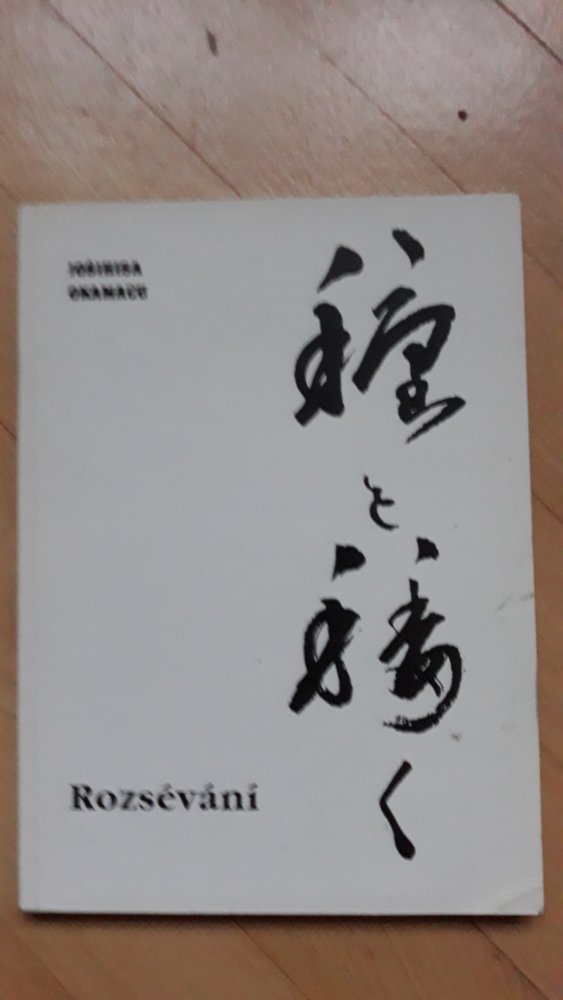 JOŠIHISA
OKAMACU
種を播く
Rozsévání